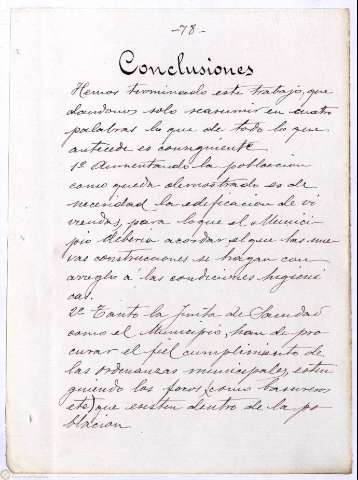 -78-
Conclusiones
Hemos terminado este trabajo, que
dandonos solo reasumir en cuatro
palabras lo que de todo lo que
antecede es consiguiente
1ª Aumentando la poblacion
como queda demostrado es de
necesidad la edificacion de vi
viendas, para lo que el Munici
pio deberia acordar el que las nue
vas construcciones se hagan con
arreglo a las condiciones higieni
cas.
2ª Tanto la Junta de Sanidad
como el Municipio, han de pro
curar el fiel cumplimiento de
las ordenanzas municipales, extin
guiendo los focos (como basureros
etc) que existen dentro de la po
blacion